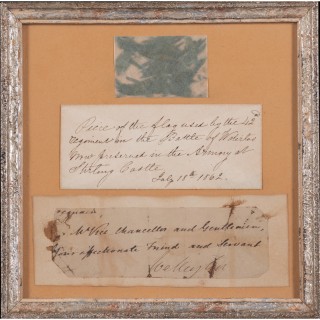 Piece of the flag used by the 42
regiment in the Battle of Waterloo
now preserved in the Armory at
Stirling Castle
July 18th 1862
Mr Vice Chancellor and Gentlemen,
Your affectionate Friend and Servant
Wellington